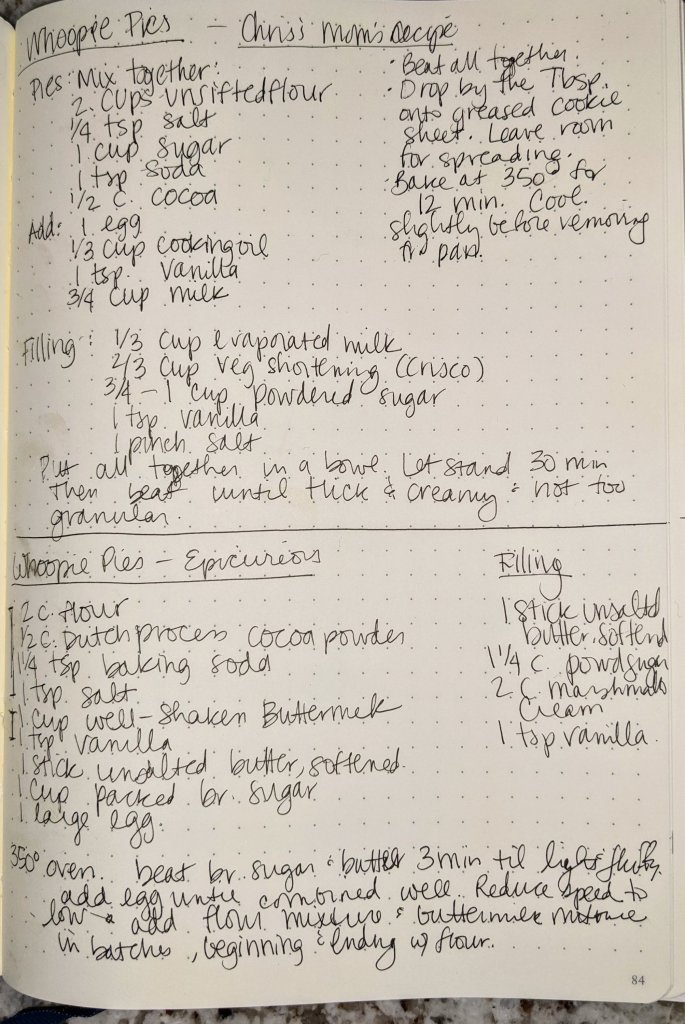 Whoopie Pies - Chris's Mom's Recipe
Pies: Mix together:
2 cups unsifted flour
1/4 tsp salt
1 cup sugar
1 tsp soda
1/2 c. cocoa
Add: 1 egg
1/3 cup cooking oil
1 tsp. vanilla
3/4 cup milk
· Beat all together.
· Drop by the Tbsp.
onto greased cookie
sheet. Leave room
for spreading.
Bake at 350° for
12 min. Cool
slightly before removing
fro pan.
Filling: 1/3 cup evaporated milk
2/3 cup veg shortening (Crisco)
3/4 - 1 cup powdered sugar
1 tsp vanilla
1 pinch salt
Put all together in a bowl. Let stand 30 min
then beat until thick & creamy & not too
granular.
Whoopie Pies - Epicureous
2 c. flour
1/2 c. Dutch process cocoa powder
1 1/4 tsp baking soda
1 tsp. salt
1 cup well-shaken Buttermilk
1 tsp vanilla
1 stick unsalted butter, softened
1 cup packed br. sugar
1 large egg
Filling
1 stick unsaltd
butter, softend
1 1/4 c. powd sugar
2 c. marshmallo
cream
1 tsp vanilla
350° oven. beat br. sugar & butter 3 min til light & fluffy,
add egg until combined well. Reduce speed to
low & add flour mixture & buttermilk mixture
in batches, beginning & ending w/ flour.
84